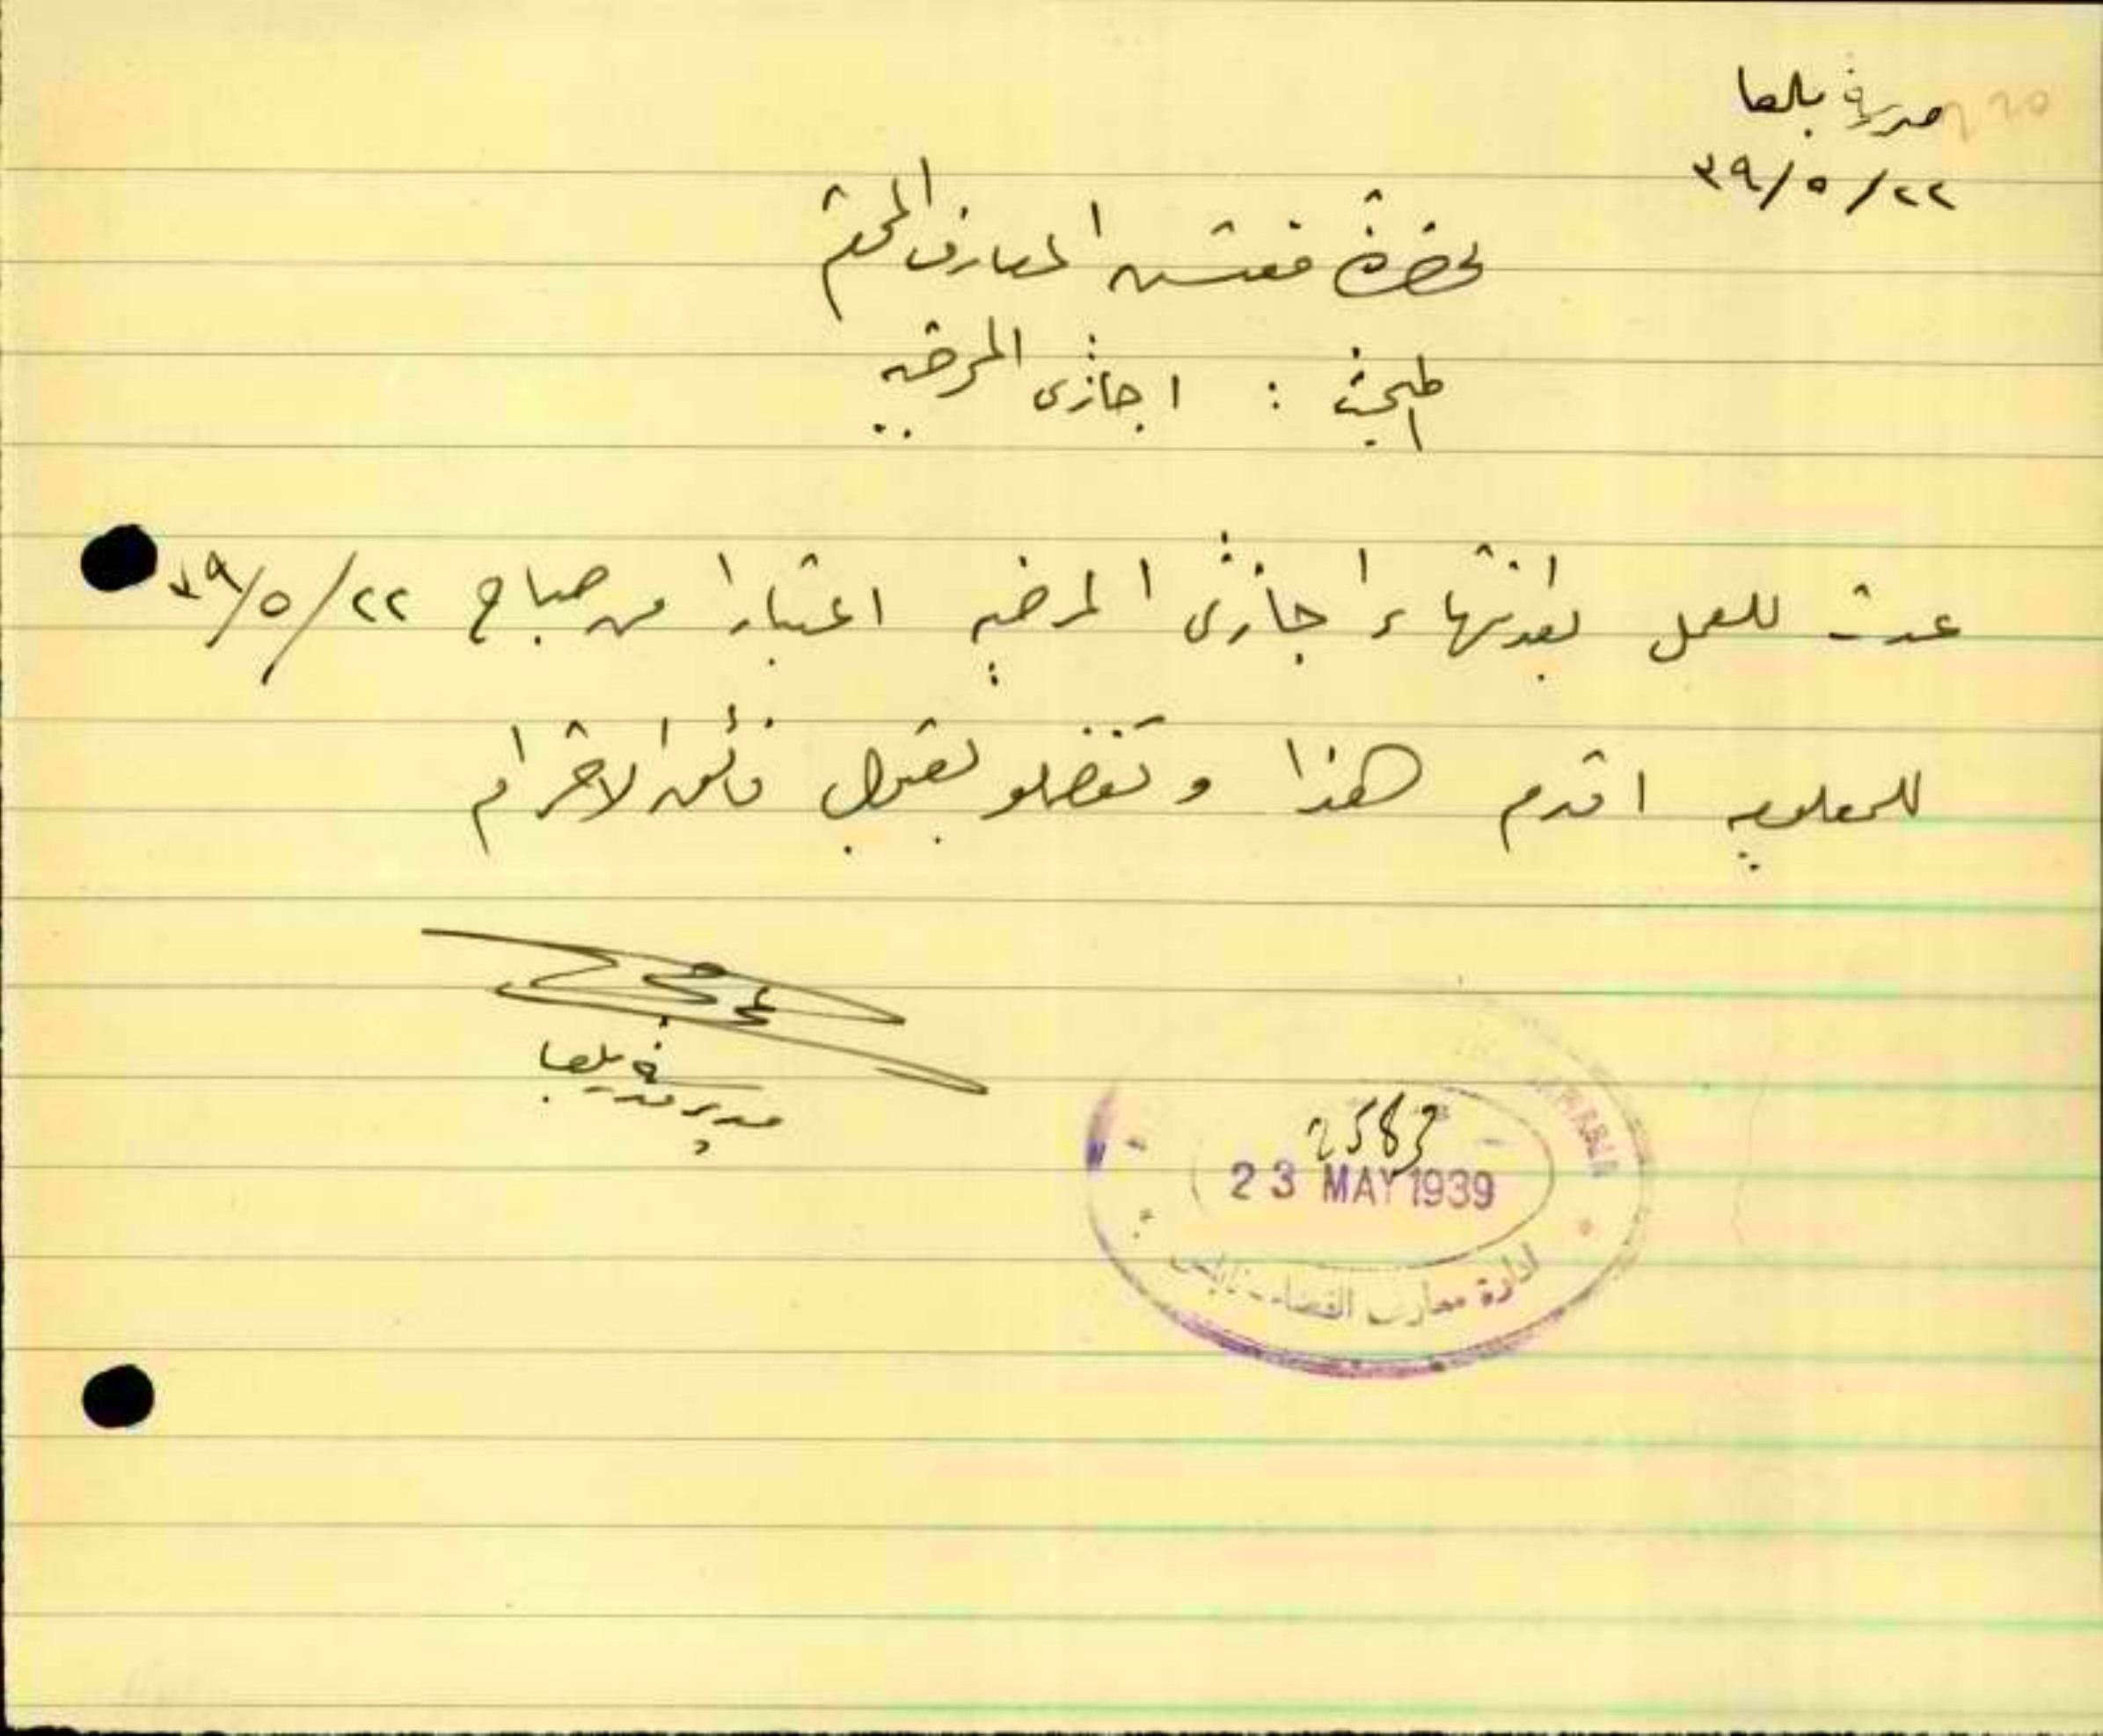 مدرسة بلعا
٣٩/٥/٢٢
لحضرة مفتش المعارف المحترم
المبحث : اجازتي المرضية
عدت للعمل بعد انتهاء اجازتي المرضيه اعتبارا من صباح ٣٩/٥/٢٢
للمعلوميه اقدم هذا وتفضلو بقبول فائق الاحترام
مدير مدرسة بلعا
2583
23 MAY 1939
ادارة معارف القضاء نابلس